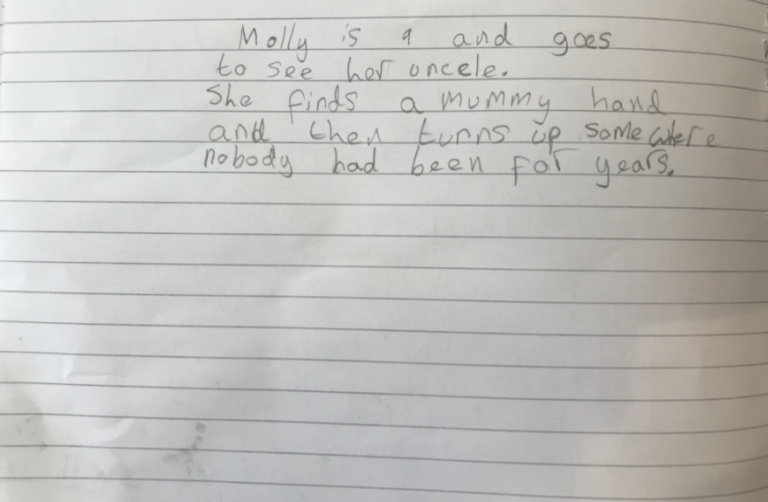 Molly is 9 and goes
to see her oncele.
She finds a mummy hand
and then turns up somewhere
nobody had been for years.